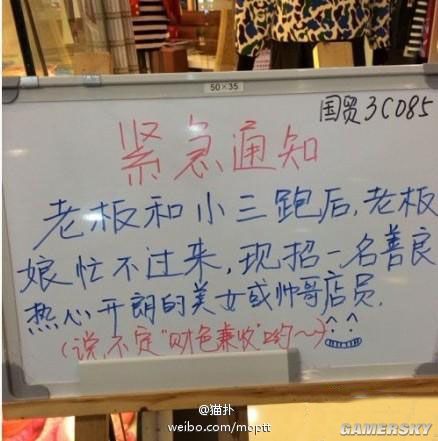 50×35
国贸3C085
紧急通知
老板和小三跑后,老板
娘忙不过来,现招一名善良
热心开朗的美女或帅哥店员.
(说不定"财色兼收"哟~)
@猫扑
weibo.com/moptt
GAMERSKY